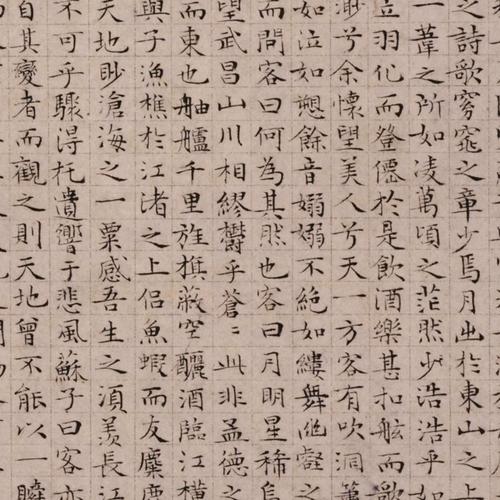 之詩歌窈窕之章少焉月出於東山之上
一葦之所如凌萬頃之茫然少浩浩乎如
立羽化而登僊於是飲酒樂甚扣舷而歌
渺兮余懷望美人兮天一方客有吹洞簫
如泣如愬餘音嫋嫋不絕如縷舞幽壑之
而問客曰何為其然也客曰月明星稀烏
望武昌山川相繆鬱乎蒼〻此非孟德之
而東也舳艫千里旌旗蔽空釃酒臨江橫
與子漁樵於江渚之上侶魚蝦而友麋鹿
天地眇滄海之一粟感吾生之湏羨長江
不可乎驟得托遺響于悲風蘇子曰客亦
自其變者而觀之則天地曾不能以一瞬